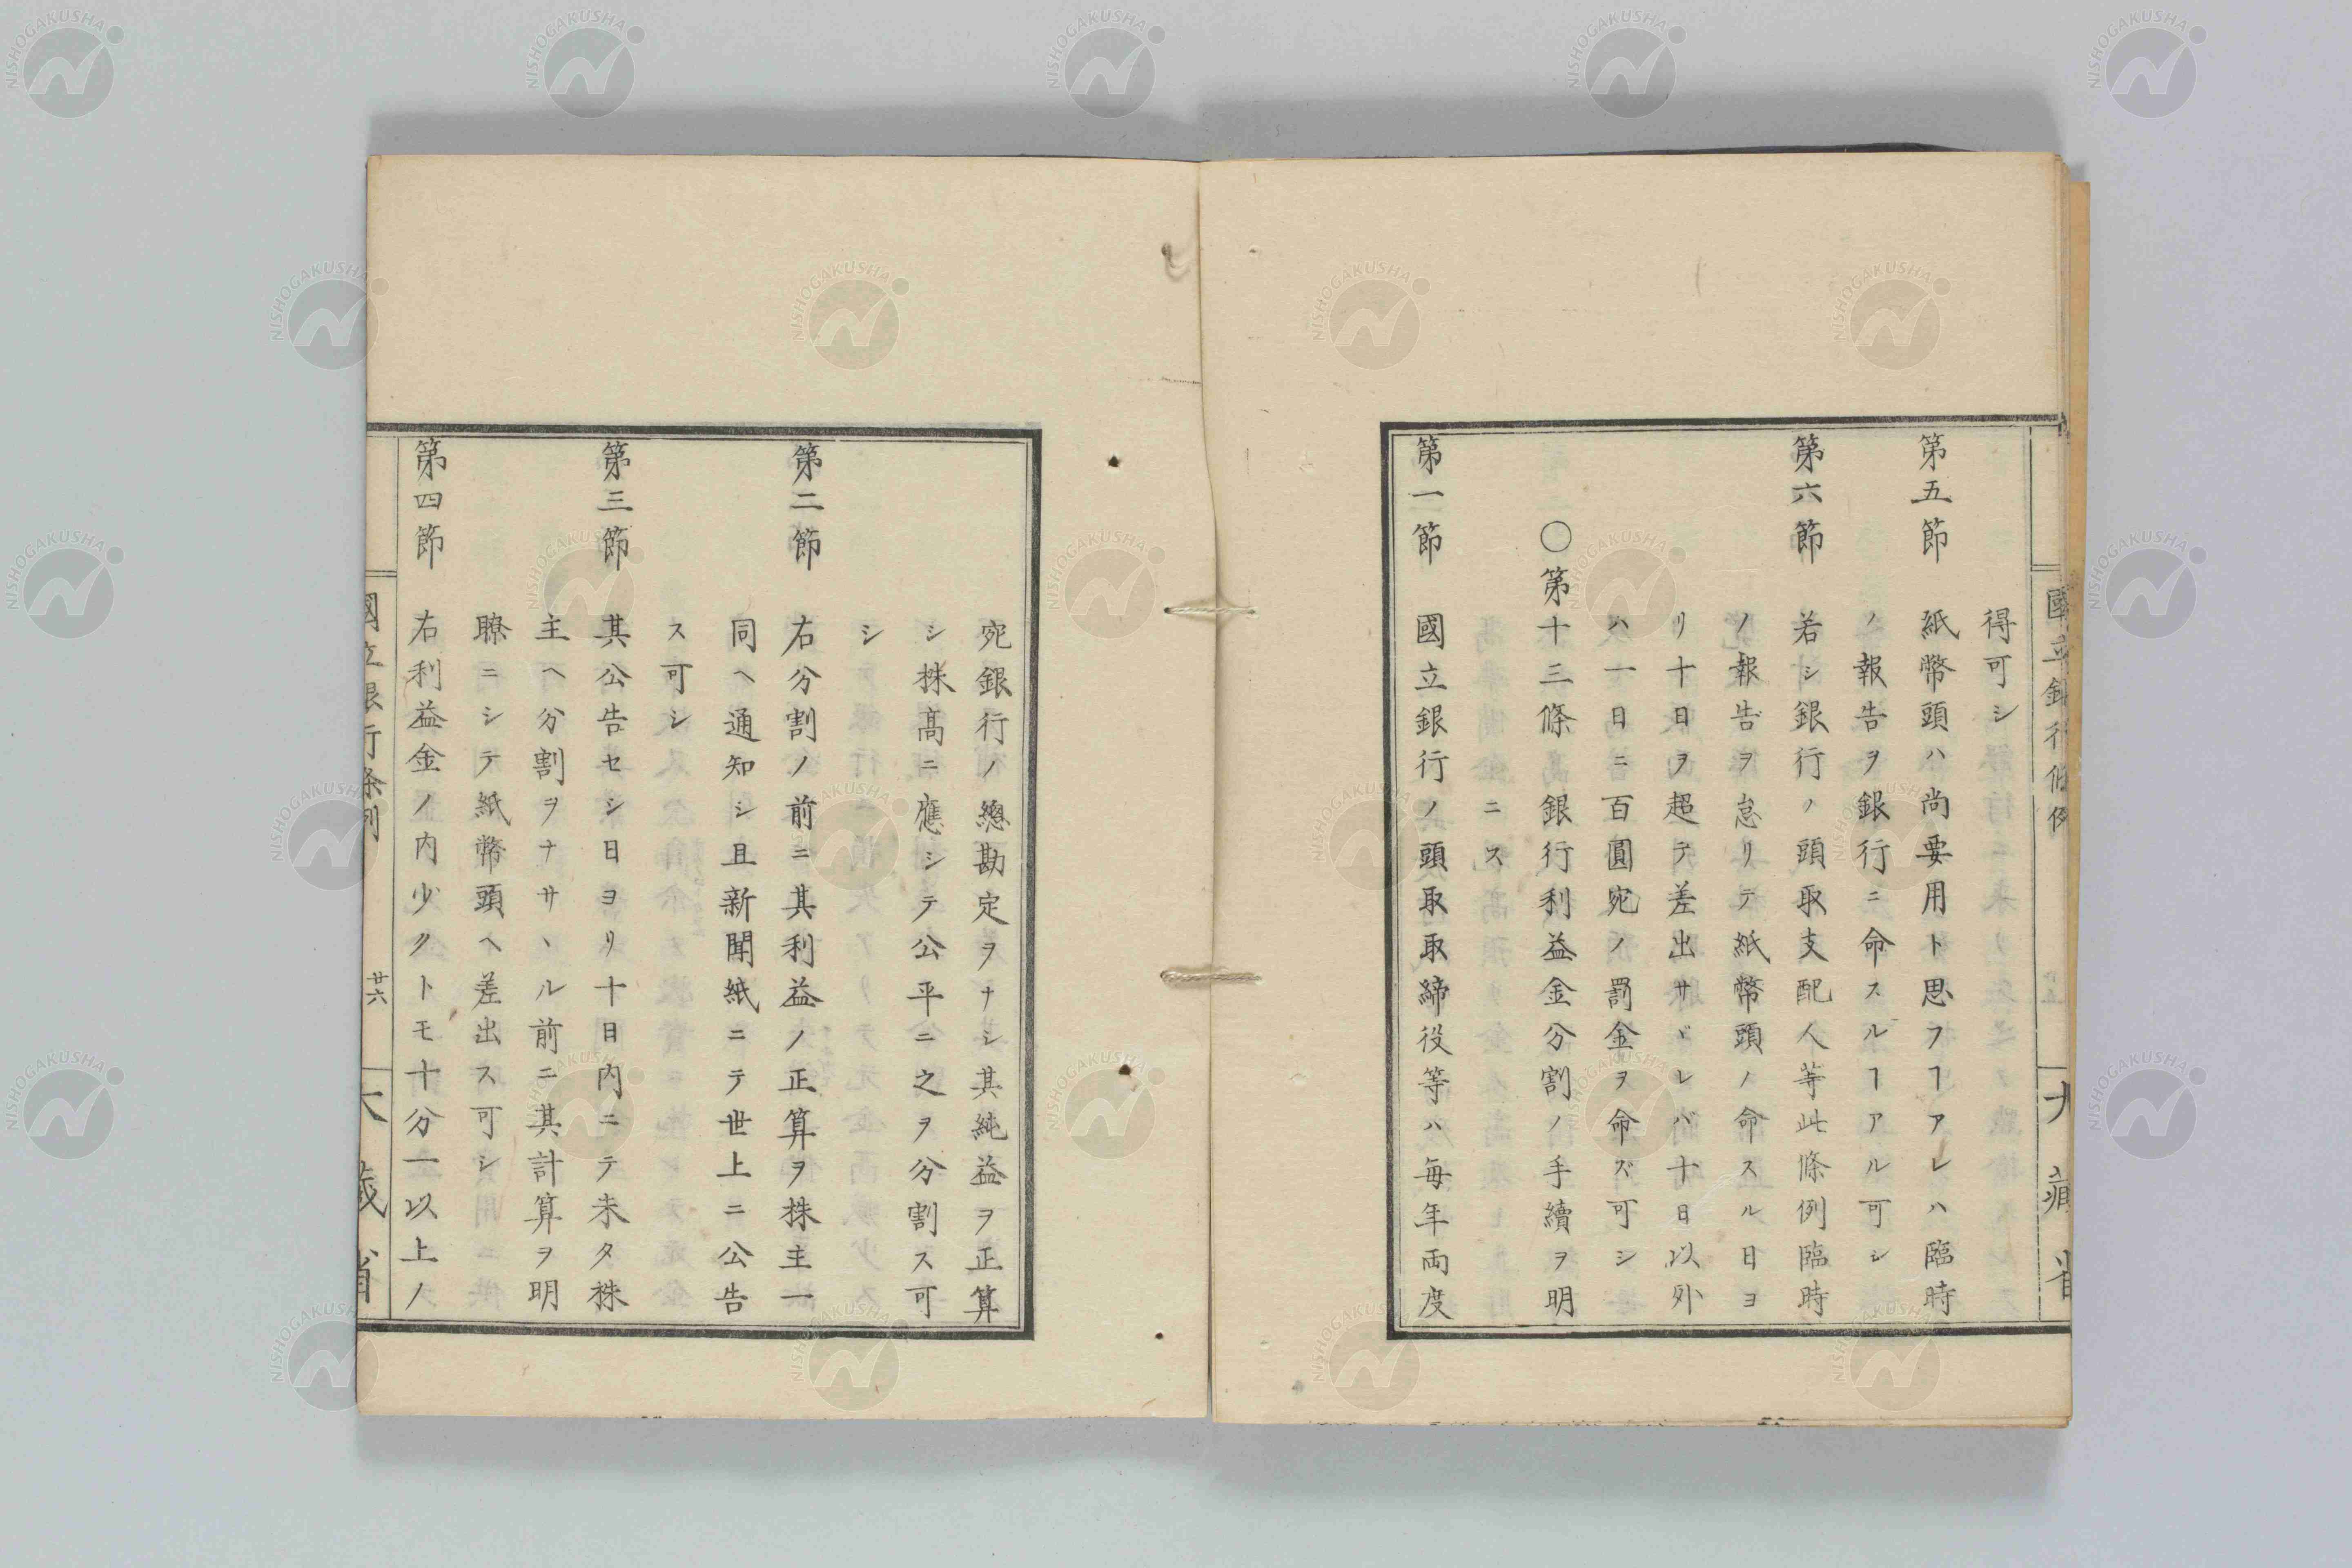 得可シ
第五節　紙幣頭ハ尚要用ト思フヿアレハ臨時
ノ報告ヲ銀行ニ命スルヿアル可シ
第六節　若シ銀行ノ頭取支配人等此條例臨時
ノ報告ヲ怠リテ紙幣頭ノ命スル日ヨ
リ十日ヲ超テ差出サヾレバ十日以外
ハ一日ニ百圓宛ノ罰金ヲ命ズ可シ
○第十三條　銀行利益金分割ノ手續ヲ明
ニス
第一節　國立銀行ノ頭取取締役等ハ毎年両度
宛銀行ノ總勘定ヲナシ其純益ヲ正算
シ株高ニ應シテ公平ニ之ヲ分割ス可
シ
第二節　右分割ノ前ニ其利益ノ正算ヲ株主一
同ヘ通知シ且新聞紙ニテ世上ニ公告
ス可シ
第三節　其公告セシ日ヨリ十日内ニテ未タ株
主ヘ分割ヲナサヽル前ニ其計算ヲ明
瞭ニシテ紙幣頭ヘ差出ス可シ
第四節　右利益金ノ内少クトモ十分一以上ノ
國立銀行條例　廿六　大藏省
NISHOGAKUSHA